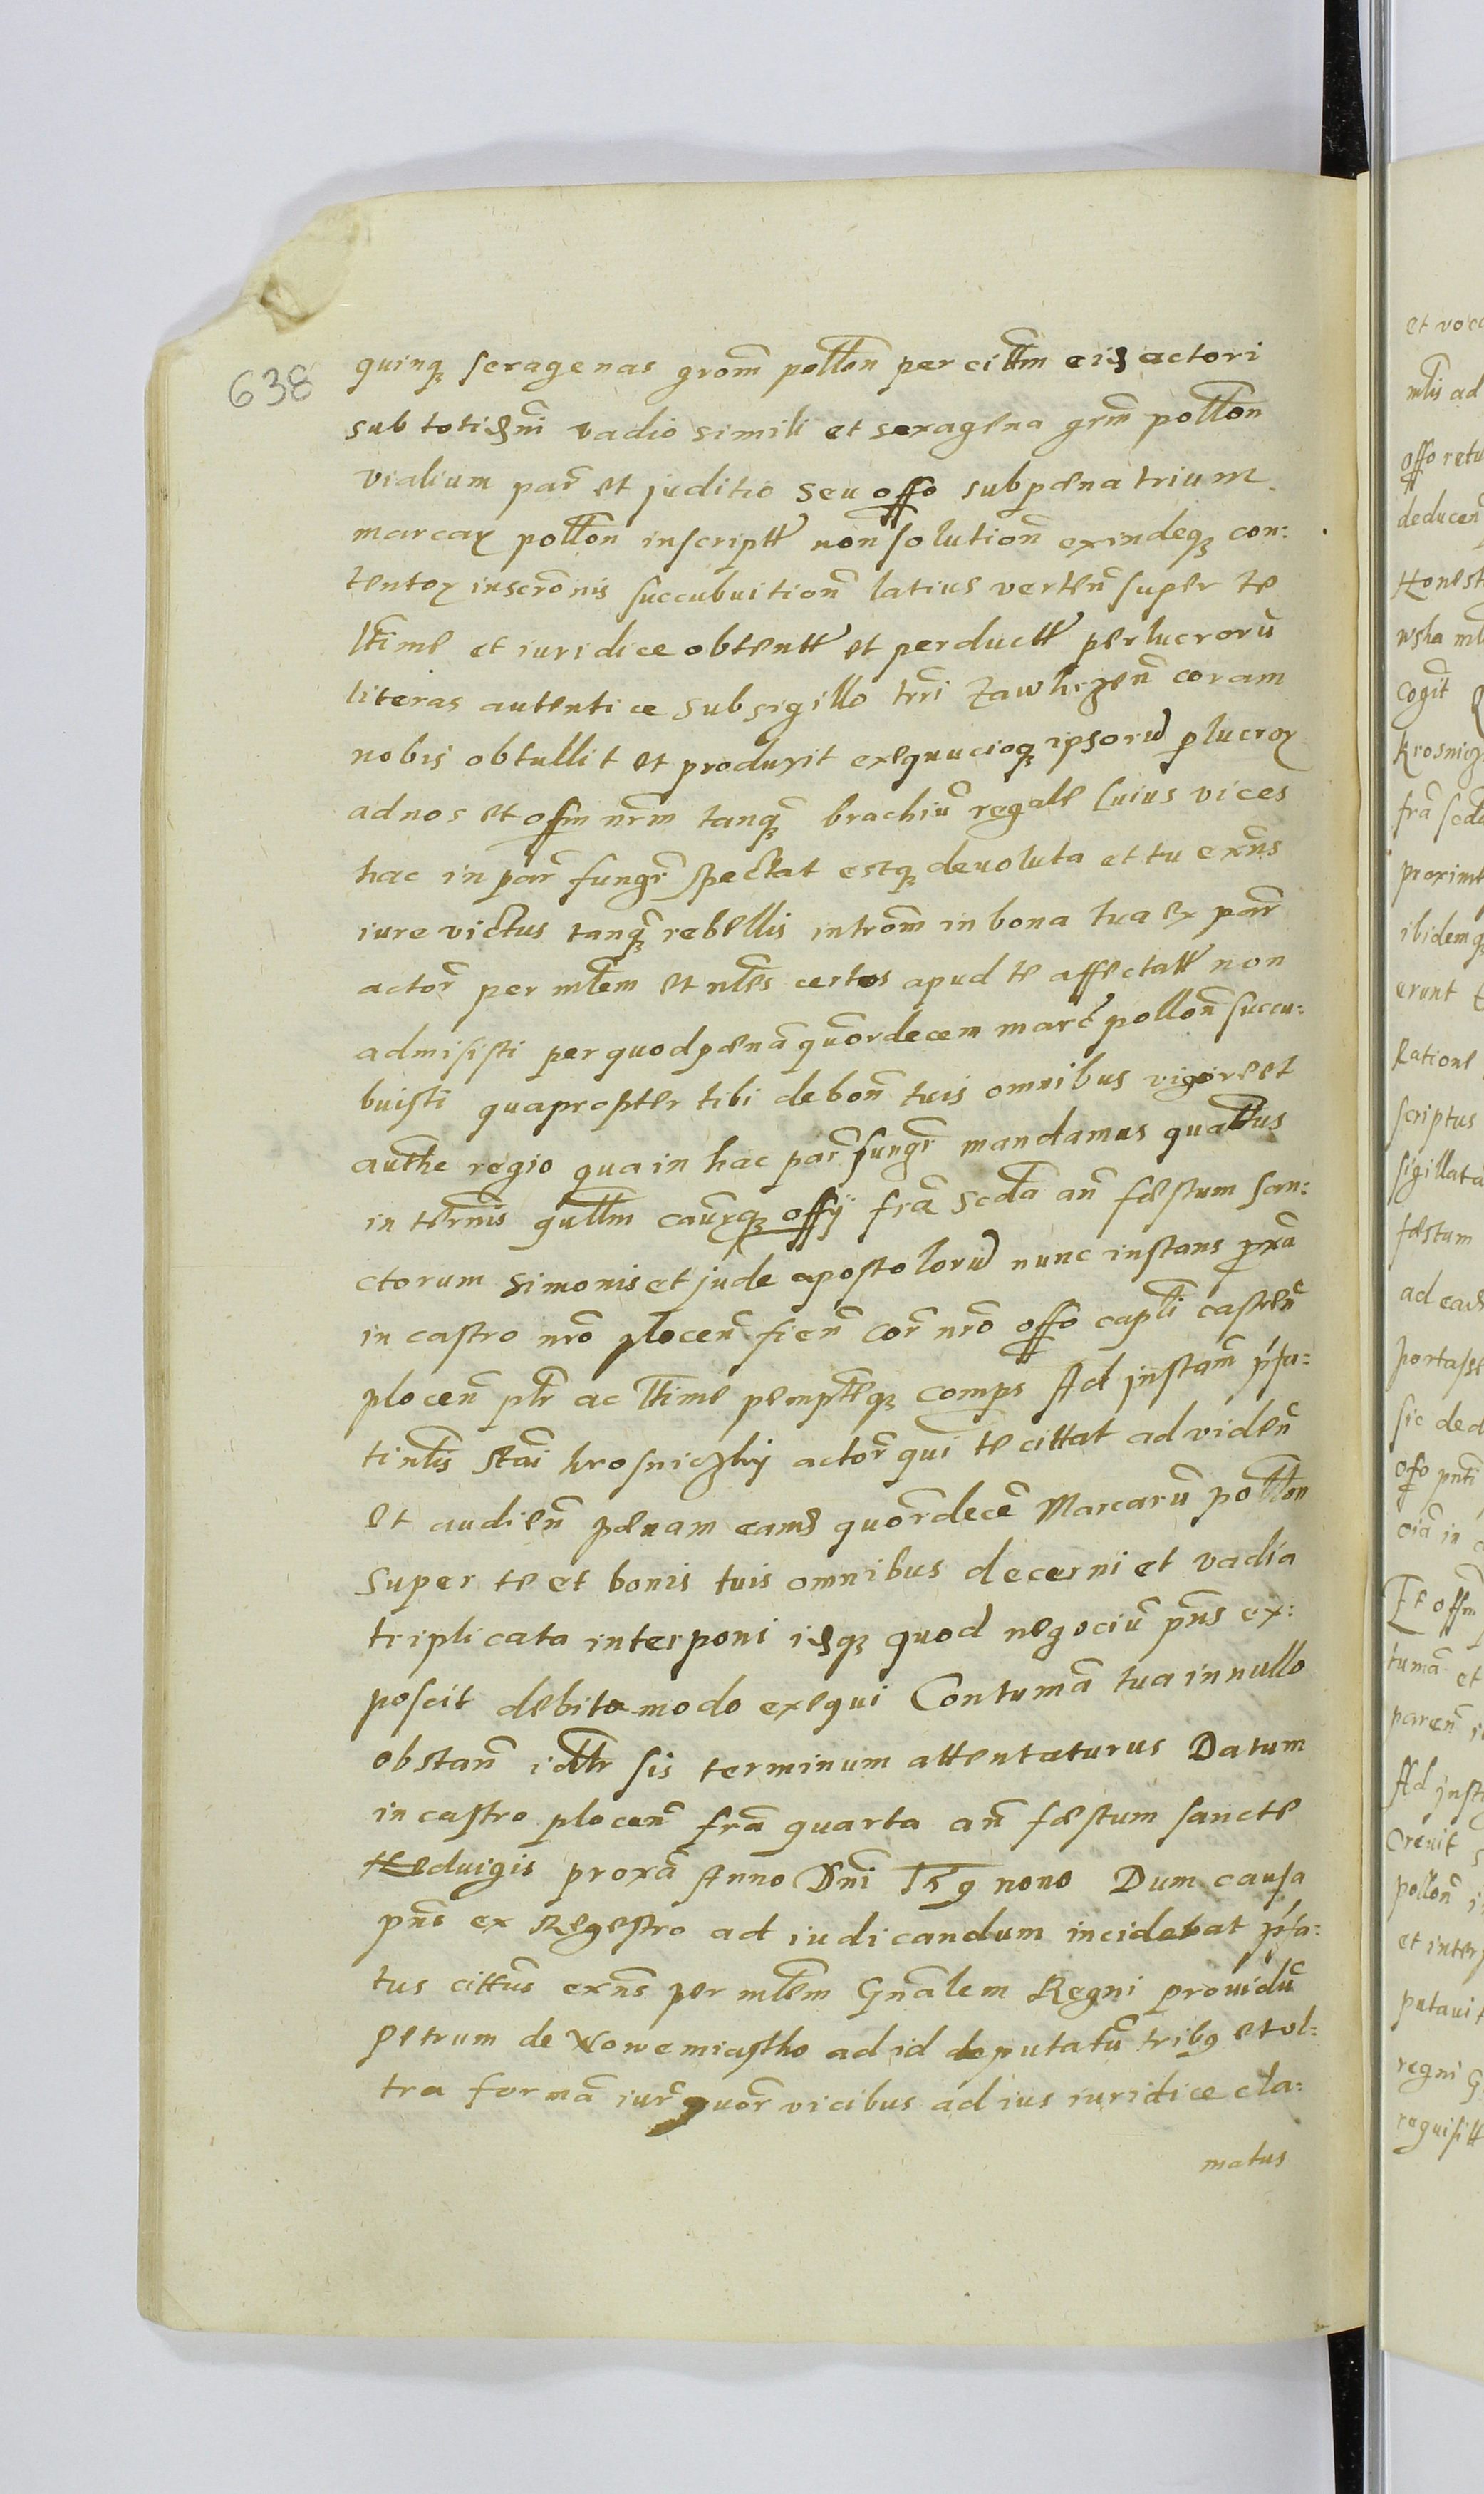 638
quinq sexagenas grom pollon per cittm eid actori
sub totidmi vadio simili et sexagena grm pollon
vialium par et juditio seu offo sub pæna trium
marcar pollon inscriptt non solution exindeq con:
tentor inscronis succubuition latius verten super te
ltime et iuridice obtentt et perductt perlucroru
literas autentice sub sigillo trri Zawkrzen coram
nobis obtullit et produxit exequucioq ipsoru plucror
ad nos et offm nrm tanq brachiu regale cuius vices
hac in par fungr spectat estq devoluta et tu exns
iure victus tanq rebellis introm in bona tua ex par
actor per mlem et nles certos apud te affectatt non
admisisti per quod pæna quordecem marc pollon succu:
buisti quapropter tibi de bon tuis omnibus vigore et
authe regio qua in hac par fungr mandamus quattus
in termis qullm caurq offy fra scda an fæstum san:
ctorum Simonis et jude apostoloru nunc instans pxa
in castro nro plocen fien cor nro offo capli castren
plocen plr ac ltime pempteq comps Ad instam pfa:
ti nlis Stai krosniczky actor qui te cittat ad viden
et audien pænam eamd quordece Marcaru pollon
super te et bonis tuis omnibus decerni et vadia
triplicata interponi idq quod negociu pns ex:
poscit debito modo exequi Contuma tua in nullo
obstan idttr sis terminum attentaturus Datum
in castro plocen fra quarta an fæstum sancte
Heduigis proxa Anno Dni nono Dum causa
pns ex Regestro ad iudicandum incidebat pfa:
tus cittus exns per mlem Gnalem Regni prouidu
petrum de Nowemiastho ad id deputatu trib9 et vl:
tra forma iur quor vicibus ad ius iuridice cla:
matus